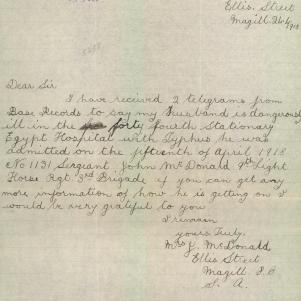 Ellis. Street
Magill. 24/4/1918
Dear Sir.
I have received 2 telegrams from
Base Records to say my Husband is dangerously
ill in the forty fourth Stationary
Egypt Hospital with Typhus he was
admitted on the fifteenth of April 1918
No 1131 Sergeant John McDonald 9th Light
Horse Rgt. 3rd Brigade if you can get any
more information of how he is getting on I
would be very grateful to you
I remain
yours Truly.
Mrs J. McDonald
Ellis Street
Magill P.O
S. A.